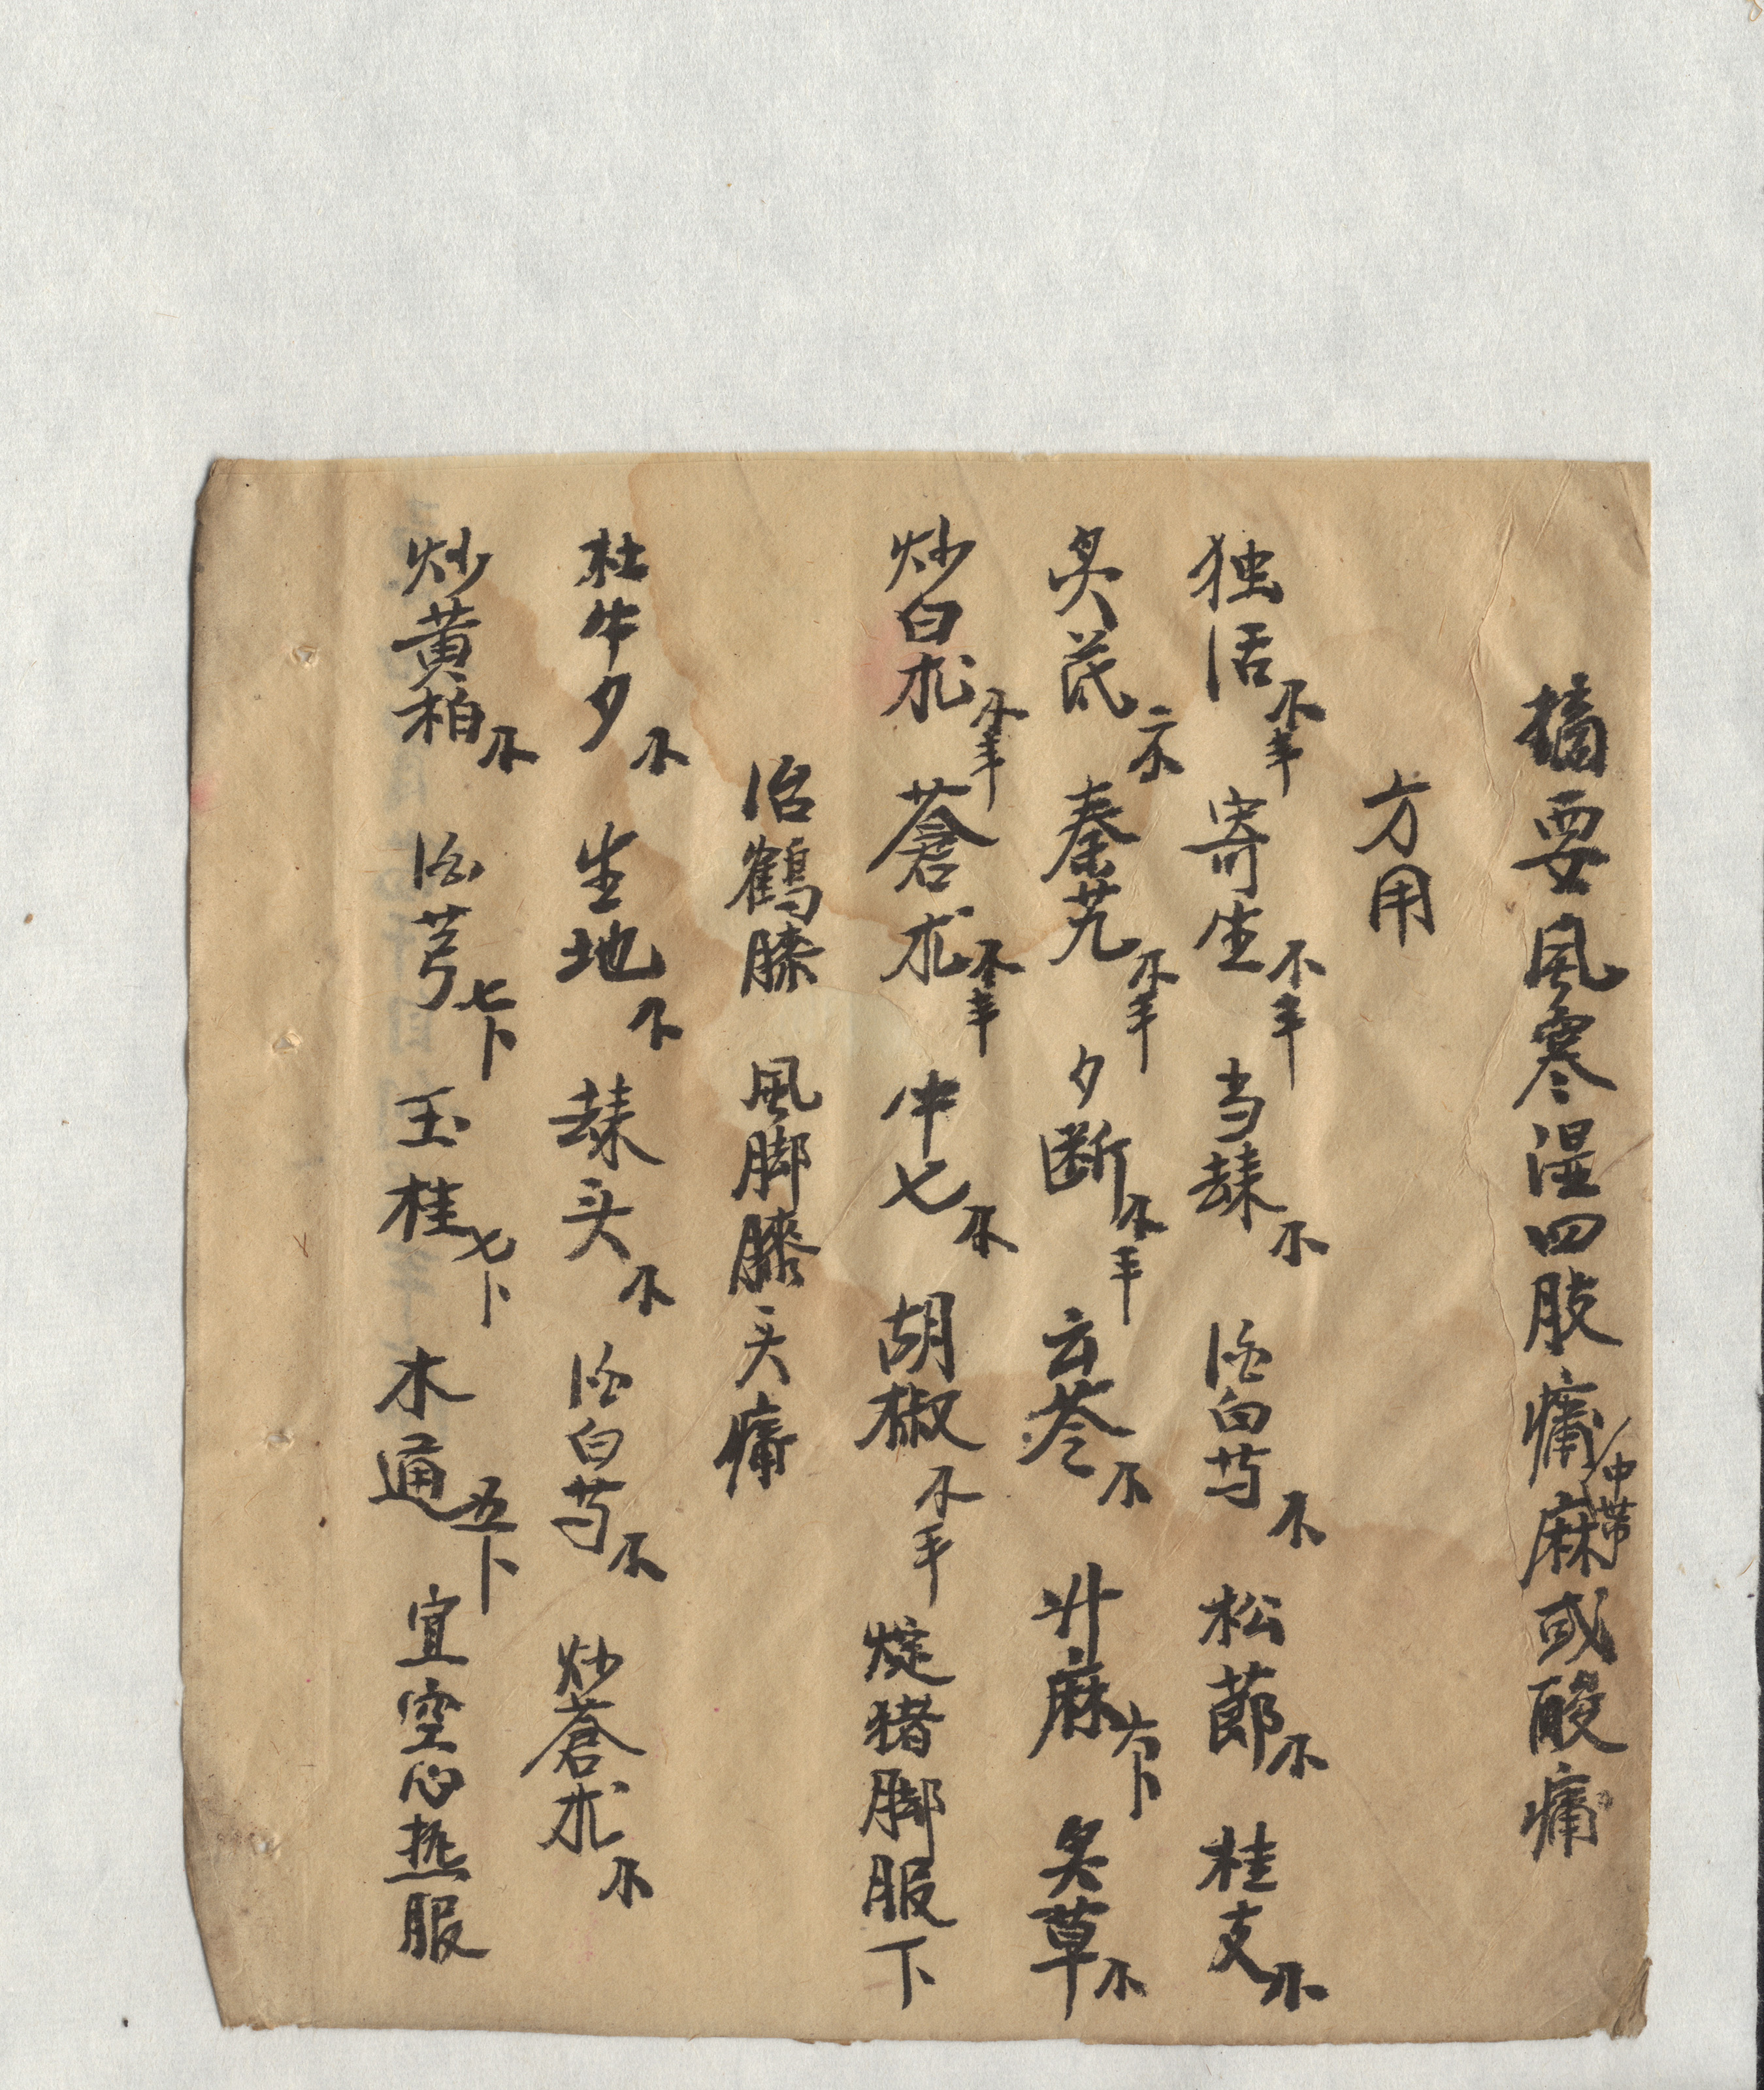 摘要風寒湿四肢痛中带麻或酸痛
方用
独活不半 寄生不半 当归不 酒白芍不 松節不 桂支不
炙芪二不 秦艽不半 夕断不半 云苓不 升麻六卜 炙草不
炒白朮不半 蒼朮不半 牛七不 胡椒不半 炖猪脚服下
治鶴膝 風脚膝头痛
杜牛夕不 生地不 归头不 酒白芍不 炒蒼朮不
炒黄柏不 酒芎七卜 玉桂七卜 木通五卜 宜空心热服